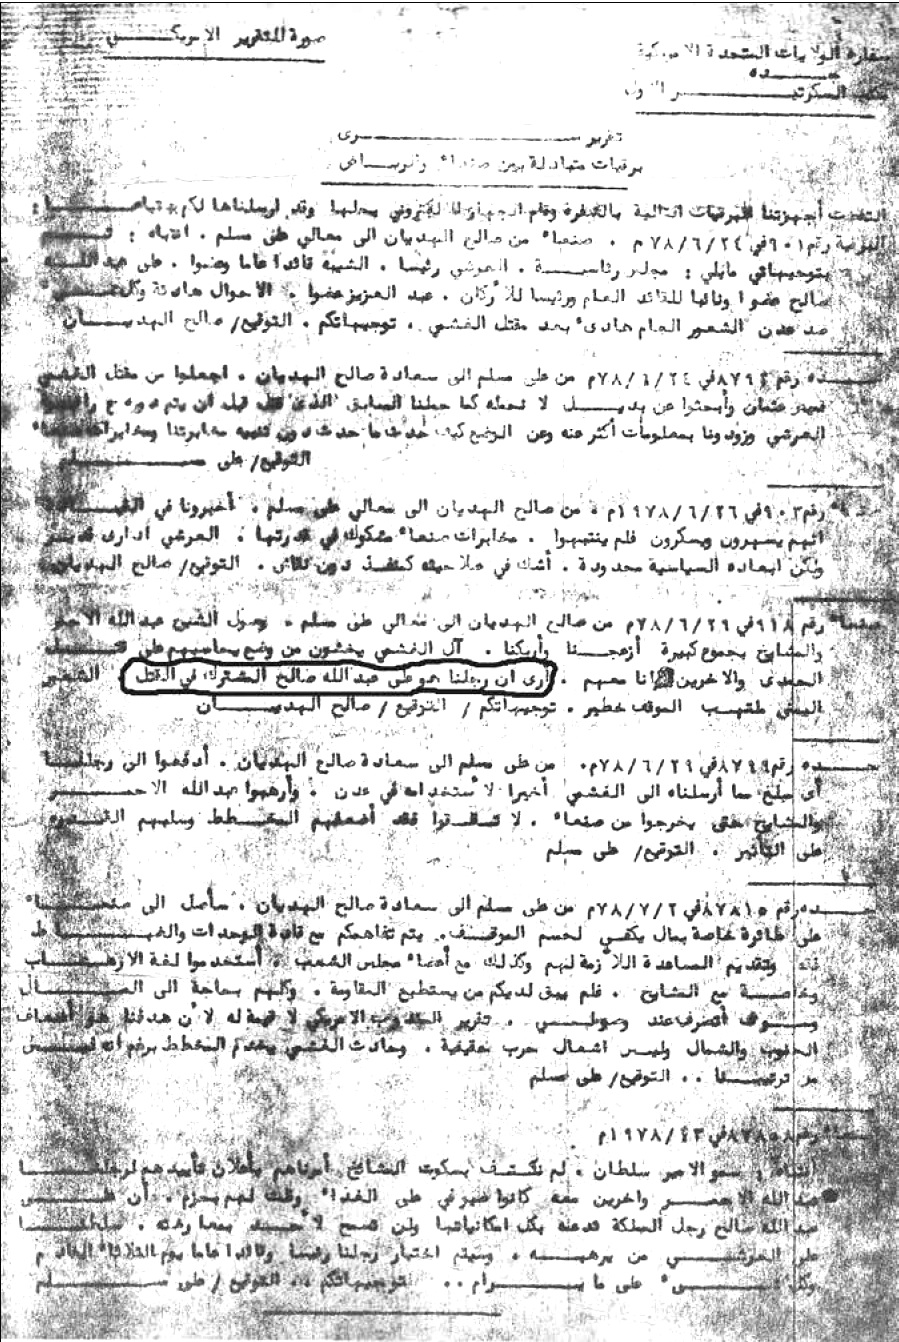 صورة للتقرير الامريكـــــي
سفارة الولايات المتحدة الامريكية
جـــــده
مكتب السكرتيـــــر الاول
تقرير ســـــرى
برقيات متبادلة بين صنعاء والريـــاض
التقطت أجهزتنا البرقيات التالية بالشفرة وقام الجهاز الالكتروني بحلها وقد ارسلناها لكم
البرقية رقم ٩٠١ في ٧٨/٦/٢٤ م . صنعاء من صالح الهديان الى معالي على مسلم . انتباه : تـــم
بتوجيهاتي مايلي : مجلس رئاســـة . العرشي رئيسا . الشيبة قائدا عاما وعضوا . على عبد اللـــه
صالح عضوا ونائبا للقائد العام ورئيسا للأركان . عبد العزيز عضوا . الاحوال هادئة وكل
ضد عدن الشعور العام هادىء بعد مقتل الغشمي . توجيهاتكم . التوقيع/ صالح الهديـــان
جـــده رقم ٨٧٩٢ في ٧٨/٦/٢٤م من على مسلم الى سعادة صالح الهديان . اجعلوا من مقتل الغشمي
قميص عثمان وأبحثوا عن بديـــل لا نحمله كما حملنا السابق الذى قتل قبل ان يتم دوره
العرشي وزودونا بمعلومات أكثر عنه وعن الوضع كيف حدث ما حدث دون تنبيه مخابرتنا
التوقيع/ على مـــسلم
رقم ٩٠٣ في ١٩٧٨/٦/٢٦م . من صالح الهديان الى معالي على مسلم . أخبرونا في
انهم يسهرون ويسكرون فلم ينتبهوا . مخابرات صنعاء مشكوك في قدرتها . العرشي ادارى قدير
ولكن ابعاده السياسية محدودة . أشك في صلاحيته كمنفذ دون نقاش . التوقيع/ صالح الهديان
صنعاء رقم ٩١٨ في ٧٨/٦/٢٩م من صالح الهديان الى معالي على مسلم . وصول الشيخ عبدالله الاحمر
والمشايخ بجموع كبيرة أزعجـــنا وأربكنا . آل الغشمي يخشون من وضع يحاسبهم على
الحمدى والاخرين وانا معهم . أرى ان رجلنا هو على عبدالله صالح المشترك في القتل . الشعور
اليمني ملتهب الموقف خطير . توجيهاتكم / التوقيع / صالح الهديـــان
جـــده رقم ٨٧٩٩ في ٧٨/٦/٢٩م . من على مسلم الى سعادة صالح الهديان . أدفعوا الى رجلنـــا
أى مبلغ مما أرسلناه الى الغشمي أخيرا لأستخدامه في عدن . وأرهبوا عبدالله الاحمـــر
والمشايخ حتى يخرجوا من صنعاء . لا فقد أضعفهم المخـــطط وسلبهم
على التأثير . التوقيع/ على مسلم
جـــده رقم ٨٧٨١٥ في ٧٨/٧/٢م من على مسلم الى سعادة صالح الهديان . سأصل الى صنعـــاء
على طائرة خاصة بمال يكفي لحسم الموقـــف. يتم تفاهمكم مع قادة الوحدات والضبـــاط
وتقديم المساعدة اللازمة لهم وكذلك مع أعضاء مجلس الشعب . أستخدموا لغة الارهـــاب
وخاصـــة مع المشايخ . فلم يبق لديكم من يستطيع المقاومة . وكلهم بحاجة الى المـــال
وســـوف أتصرف عند وصولـــي . تقرير المندوب الامريكي لا قيمة له لأن هدفنا هو أضعاف
الجنوب والشمال وليس اشعال حرب حقيقية . وحادث الغشمي يخدم المخطط برغم أنه
من ترتيبـــنا .. التوقيع/ على مسلم
صنعاء رقم ٨٧٨٥٨ في ١٩٧٨/
سمو الامير سلطان . لم نكتـــف بسكوت المشايخ أمرناهم بأعلان تأييدهم لرجلنـــا
عبدالله الاحمـــر واخرين معه كانوا على الغداء وقلت لهم بحزم . أن على
عبدالله صالح رجل المملكة ندعمه بكل امكانياتها ولن نسمح لأحـــد بمعارضته .
على العرشـــي من يرهبـــه . وسيتم اختيار رجلنا رئيسا وقائدا عاما يوم الثلاثاء القادم
وكل شـــيء على ما يـــرام .. توجيهاتكم .. التوقيع / على مـــسلم